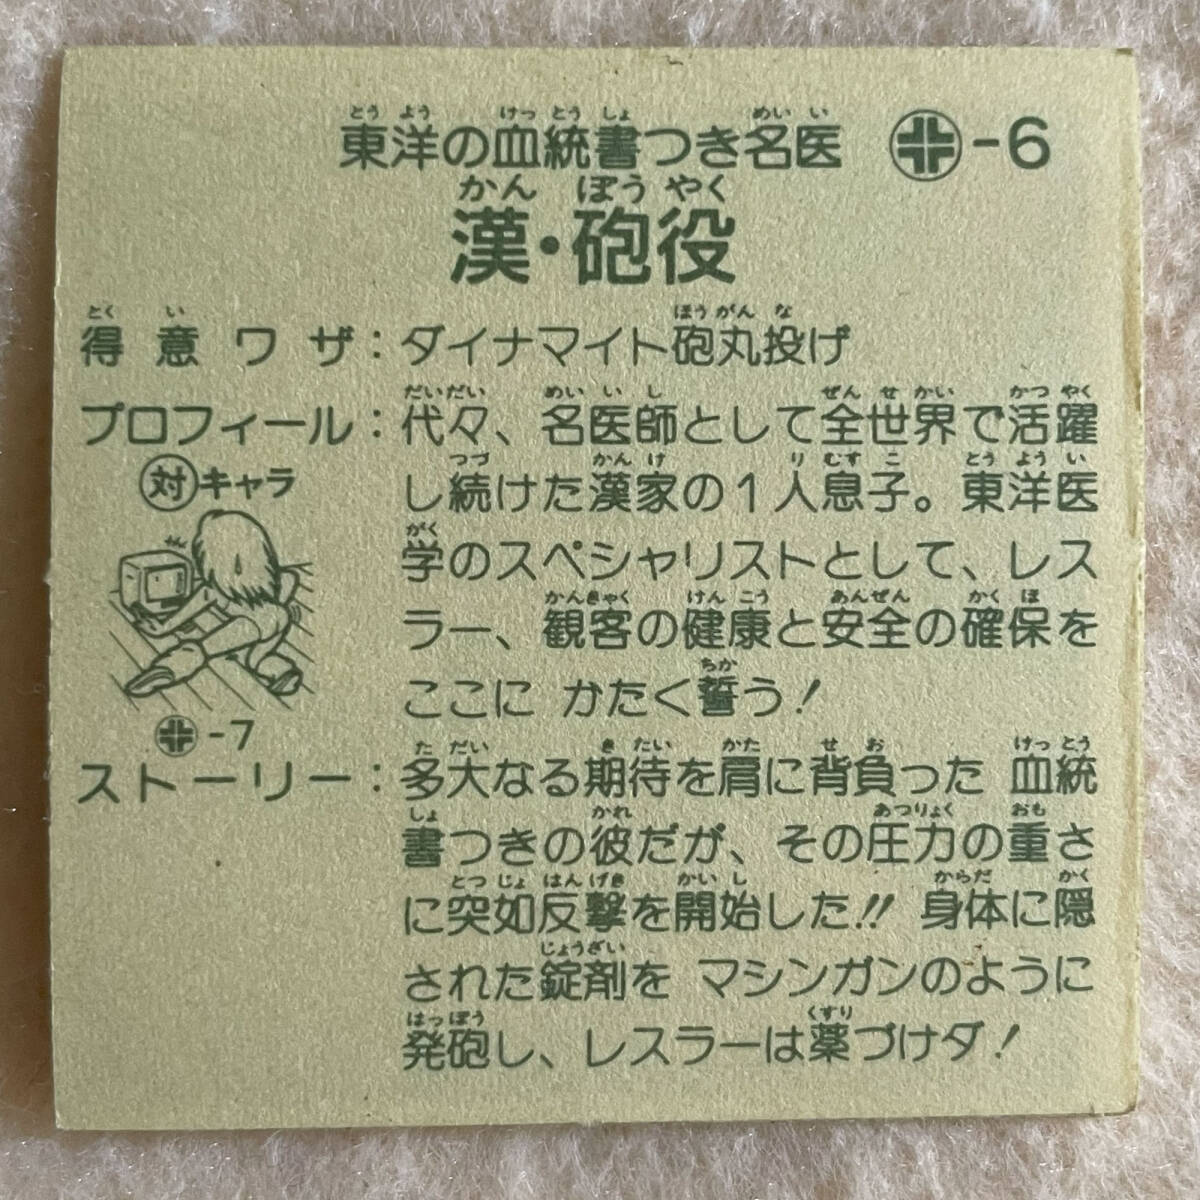 東洋の血統書つき名医 -6
漢・砲役
得意ワザ：ダイナマイト砲丸投げ
プロフィール：代々、名医師として全世界で活躍
し続けた漢家の1人息子。東洋医
学のスペシャリストとして、レス
ラー、観客の健康と安全の確保を
ここに かたく誓う！
対キャラ
-7
ストーリー：多大なる期待を肩に背負った 血統
書つきの彼だが、その圧力の重さ
に突如反撃を開始した!! 身体に隠
された錠剤を マシンガンのように
発砲し、レスラーは薬づけダ！